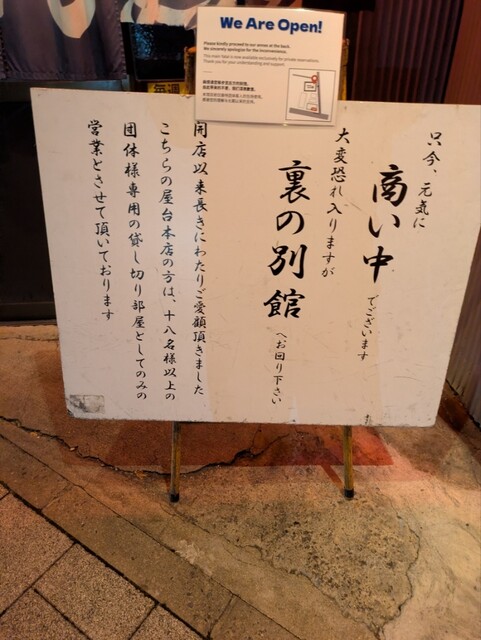 We Are Open!
Please kindly proceed to our annex at the back.
We sincerely apologize for the inconvenience.
This main hotel is now available exclusively for private reservations.
Thank you for your understanding and support.
只今、元気に
商い中でございます
大変恐れ入りますが
裏の別館へお回り下さい
開店以来長きにわたりご愛顧頂きました
こちらの屋台本店の方は、十八名様以上の
団体様専用の貸し切り部屋としてのみの
営業とさせて頂いております